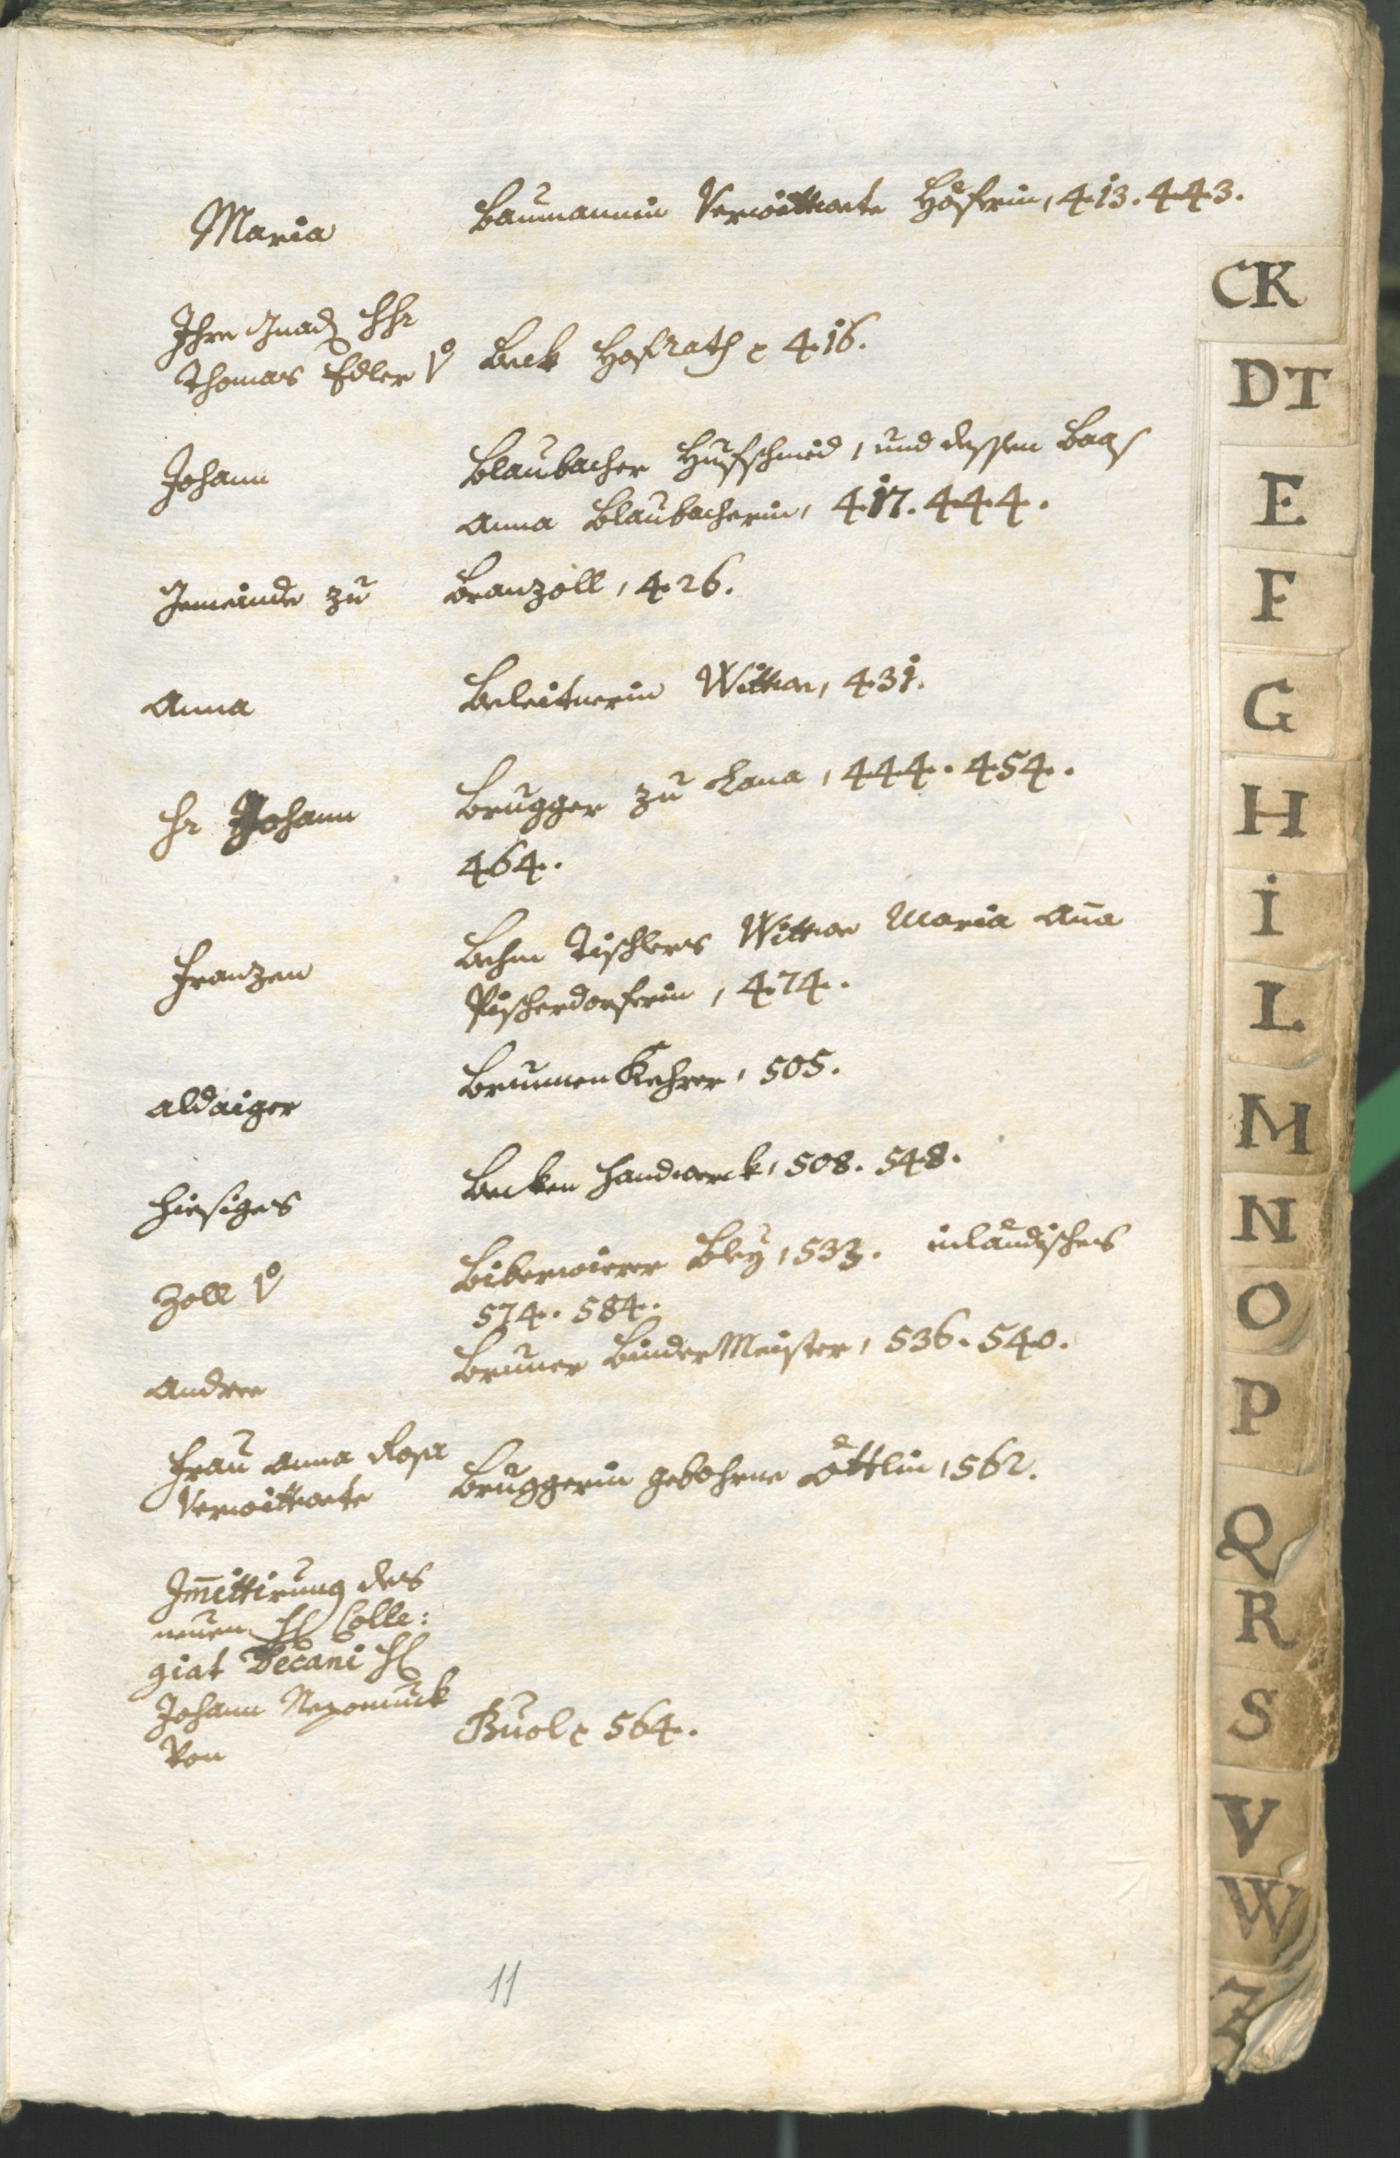 Maria Baumannin Verwittwete Höferin, 413. 443.
Ihro Gnad Hhr
Thomas Edler V. Beck Hofrath p 416.
Johann Blaubacher Hufschmid, und dessen Baas
Anna Blaubacherin, 417. 444.
Gemeinde zu Branzoll, 426.
Anna Beleitnerin Wittwe, 431.
Hr Johann Brugger zu Lana, 444. 454.
464.
Franzen Behm Tischlers Wittwe Maria Aña
Pischerdorferin, 474.
aldaiger BrunnenKehrer, 505.
hiesiges Becken Handwerck, 508. 548.
Zoll V. Biberwierer Bley, 533. inländisches
574. 584.
Andree Bruner BinderMeister, 536. 540.
Frau Anna Rosa
Verwittwete Bruggerin gebohrne Öttlin, 562.
Im̄ittirung des
neuen H Colle:
giat Decani H
Johann Nepomuck
von Buol p 564.
11
CK
DT
E
F
G
H
I
L
M
N
O
P
Q
R
S
V
W
Z